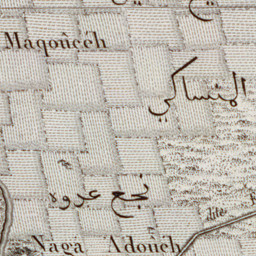 Maqoûcéh
المنساكي
نجع عدوه
dite
Naga Adouéh